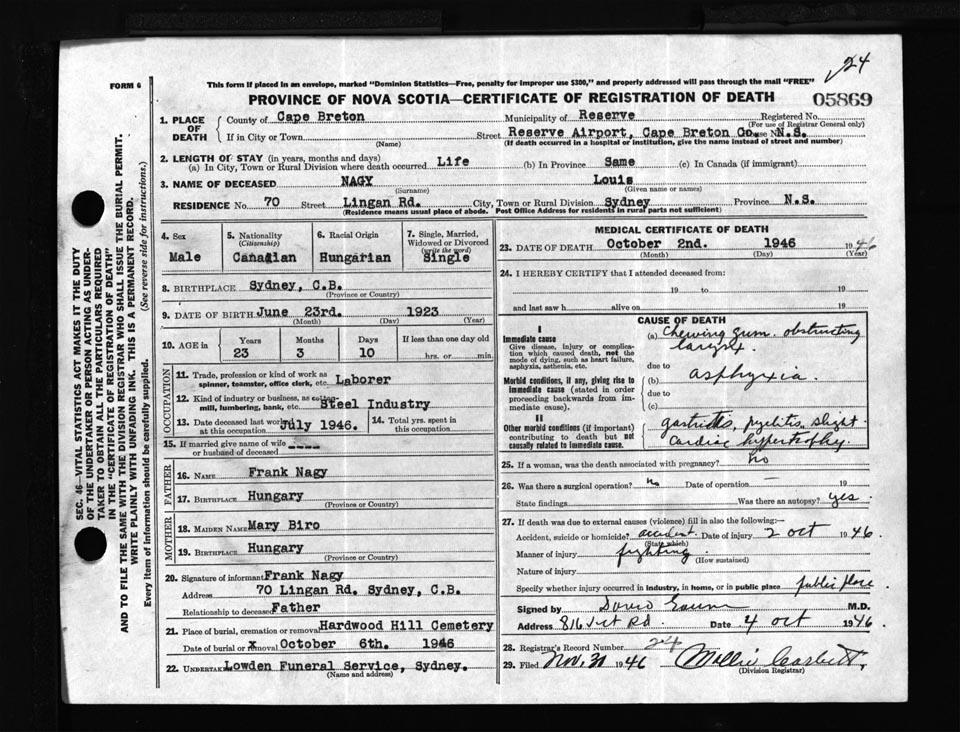 24
FORM 6
This form if placed in an envelope, marked "Dominion Statistics—Free, penalty for improper use $300," and properly addressed will pass through the mail "FREE"
PROVINCE OF NOVA SCOTIA—CERTIFICATE OF REGISTRATION OF DEATH
05869
1. PLACE OF DEATH
County of Cape Breton Municipality of Reserve Registered No.
(For use of Registrar General only)
If in City or Town Street Reserve Airport, Cape Breton Co. House No. N.S.
(Name) (If death occurred in a hospital or institution, give the name instead of street and number)
2. LENGTH OF STAY (in years, months and days)
(a) In City, Town or Rural Division where death occurred Life (b) In Province Same (c) In Canada (if immigrant)
3. NAME OF DECEASED NAGY Louis
(Surname) (Given name or names)
RESIDENCE No. 70 Street Lingan Rd. City, Town or Rural Division Sydney Province N.S.
(Residence means usual place of abode. Post Office Address for residents in rural parts not sufficient)
4. Sex
Male
5. Nationality
(Citizenship)
Canadian
6. Racial Origin
Hungarian
7. Single, Married, Widowed or Divorced
(write the word)
Single
8. BIRTHPLACE Sydney, C.B.
(Province or Country)
9. DATE OF BIRTH June 23rd. 1923
(Month) (Day) (Year)
10. AGE in Years Months Days If less than one day old
23 3 10 hrs. or min.
OCCUPATION
11. Trade, profession or kind of work as
spinner, teamster, office clerk, etc. Laborer
12. Kind of industry or business, as cotton-
mill, lumbering, bank, etc. Steel Industry
13. Date deceased last worked at this occupation July 1946.
14. Total yrs. spent in this occupation
15. If married give name of wife or husband of deceased ----
FATHER
16. Name Frank Nagy
17. Birthplace Hungary
(Province or Country)
MOTHER
18. Maiden Name Mary Biro
19. Birthplace Hungary
(Province or Country)
20. Signature of informant Frank Nagy
Address 70 Lingan Rd. Sydney, C.B.
Relationship to deceased Father
21. Place of burial, cremation or removal Hardwood Hill Cemetery
Date of burial or removal October 6th. 1946
22. Undertaker Lowden Funeral Service, Sydney.
(Name and address)
MEDICAL CERTIFICATE OF DEATH
23. DATE OF DEATH October 2nd. 1946 1946
(Month) (Day) (Year)
24. I HEREBY CERTIFY that I attended deceased from:
19 to 19
and last saw h alive on 19
CAUSE OF DEATH
I
Immediate cause
Give disease, injury or complication which caused death, not the mode of dying, such as heart failure, asphyxia, asthenia, etc.
(a) Chewing gum obstructing
larynx.
due to
Morbid conditions, if any, giving rise to immediate cause (stated in order proceeding backwards from immediate cause).
(b) asphyxia.
due to
(c)
II
Other morbid conditions (if important) contributing to death but not causally related to immediate cause.
gastritis, pyelitis, slight
cardiac hypertrophy.
25. If a woman, was the death associated with pregnancy? no
26. Was there a surgical operation? no Date of operation — 19
State findings Was there an autopsy? yes.
27. If death was due to external causes (violence) fill in also the following:—
Accident, suicide or homicide? accident. Date of injury 2 Oct 1946
(State which)
Manner of injury fighting.
(How sustained)
Nature of injury
Specify whether injury occurred in industry, in home, or in public place public place
Signed by M.D.
Address 816 Vict Rd Date 4 Oct 1946.
28. Registrar's Record Number 24
29. Filed Nov. 30 1946 Millie Corbett,
(Division Registrar)
SEC. 46—VITAL STATISTICS ACT MAKES IT THE DUTY
OF THE UNDERTAKER OR PERSON ACTING AS UNDER-
TAKER TO OBTAIN ALL THE PARTICULARS REQUIRED
IN THE "CERTIFICATE OF REGISTRATION OF DEATH"
AND TO FILE THE SAME WITH THE DIVISION REGISTRAR WHO SHALL ISSUE THE BURIAL PERMIT.
WRITE PLAINLY WITH UNFADING INK. THIS IS A PERMANENT RECORD.
Every item of information should be carefully supplied. (See reverse side for instructions.)